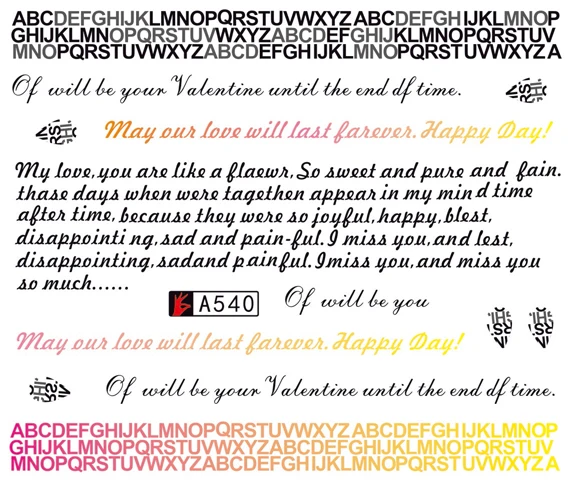 ABCDEFGHIJKLMNOPQRSTUVWXYZABCDEFGHIJKLMNOP
GHIJKLMNOPQRSTUVWXYZABCDEFGHIJKLMNOPQRSTUV
MNOPQRSTUVWXYZABCDEFGHIJKLMNOPQRSTUVWXYZA
Of will be your Valentine until the end df time.
May our love will last farever. Happy Day!
My love, you are like a flaewr, So sweet and pure and fain.
thase days when were tagethen appear in my min d time
after time, because they were so joyful, happy, blest,
disappointi ng, sad and pain-ful. I miss you, and lest,
disappointing, sadand painful. I miss you, and miss you
so much......
A540
Of will be you
May our love will last farever. Happy Day!
Of will be your Valentine until the end df time.
ABCDEFGHIJKLMNOPQRSTUVWXYZABCDEFGHIJKLMNOP
GHIJKLMNOPQRSTUVWXYZABCDEFGHIJKLMNOPQRSTUV
MNOPQRSTUVWXYZABCDEFGHIJKLMNOPQRSTUVWXYZA